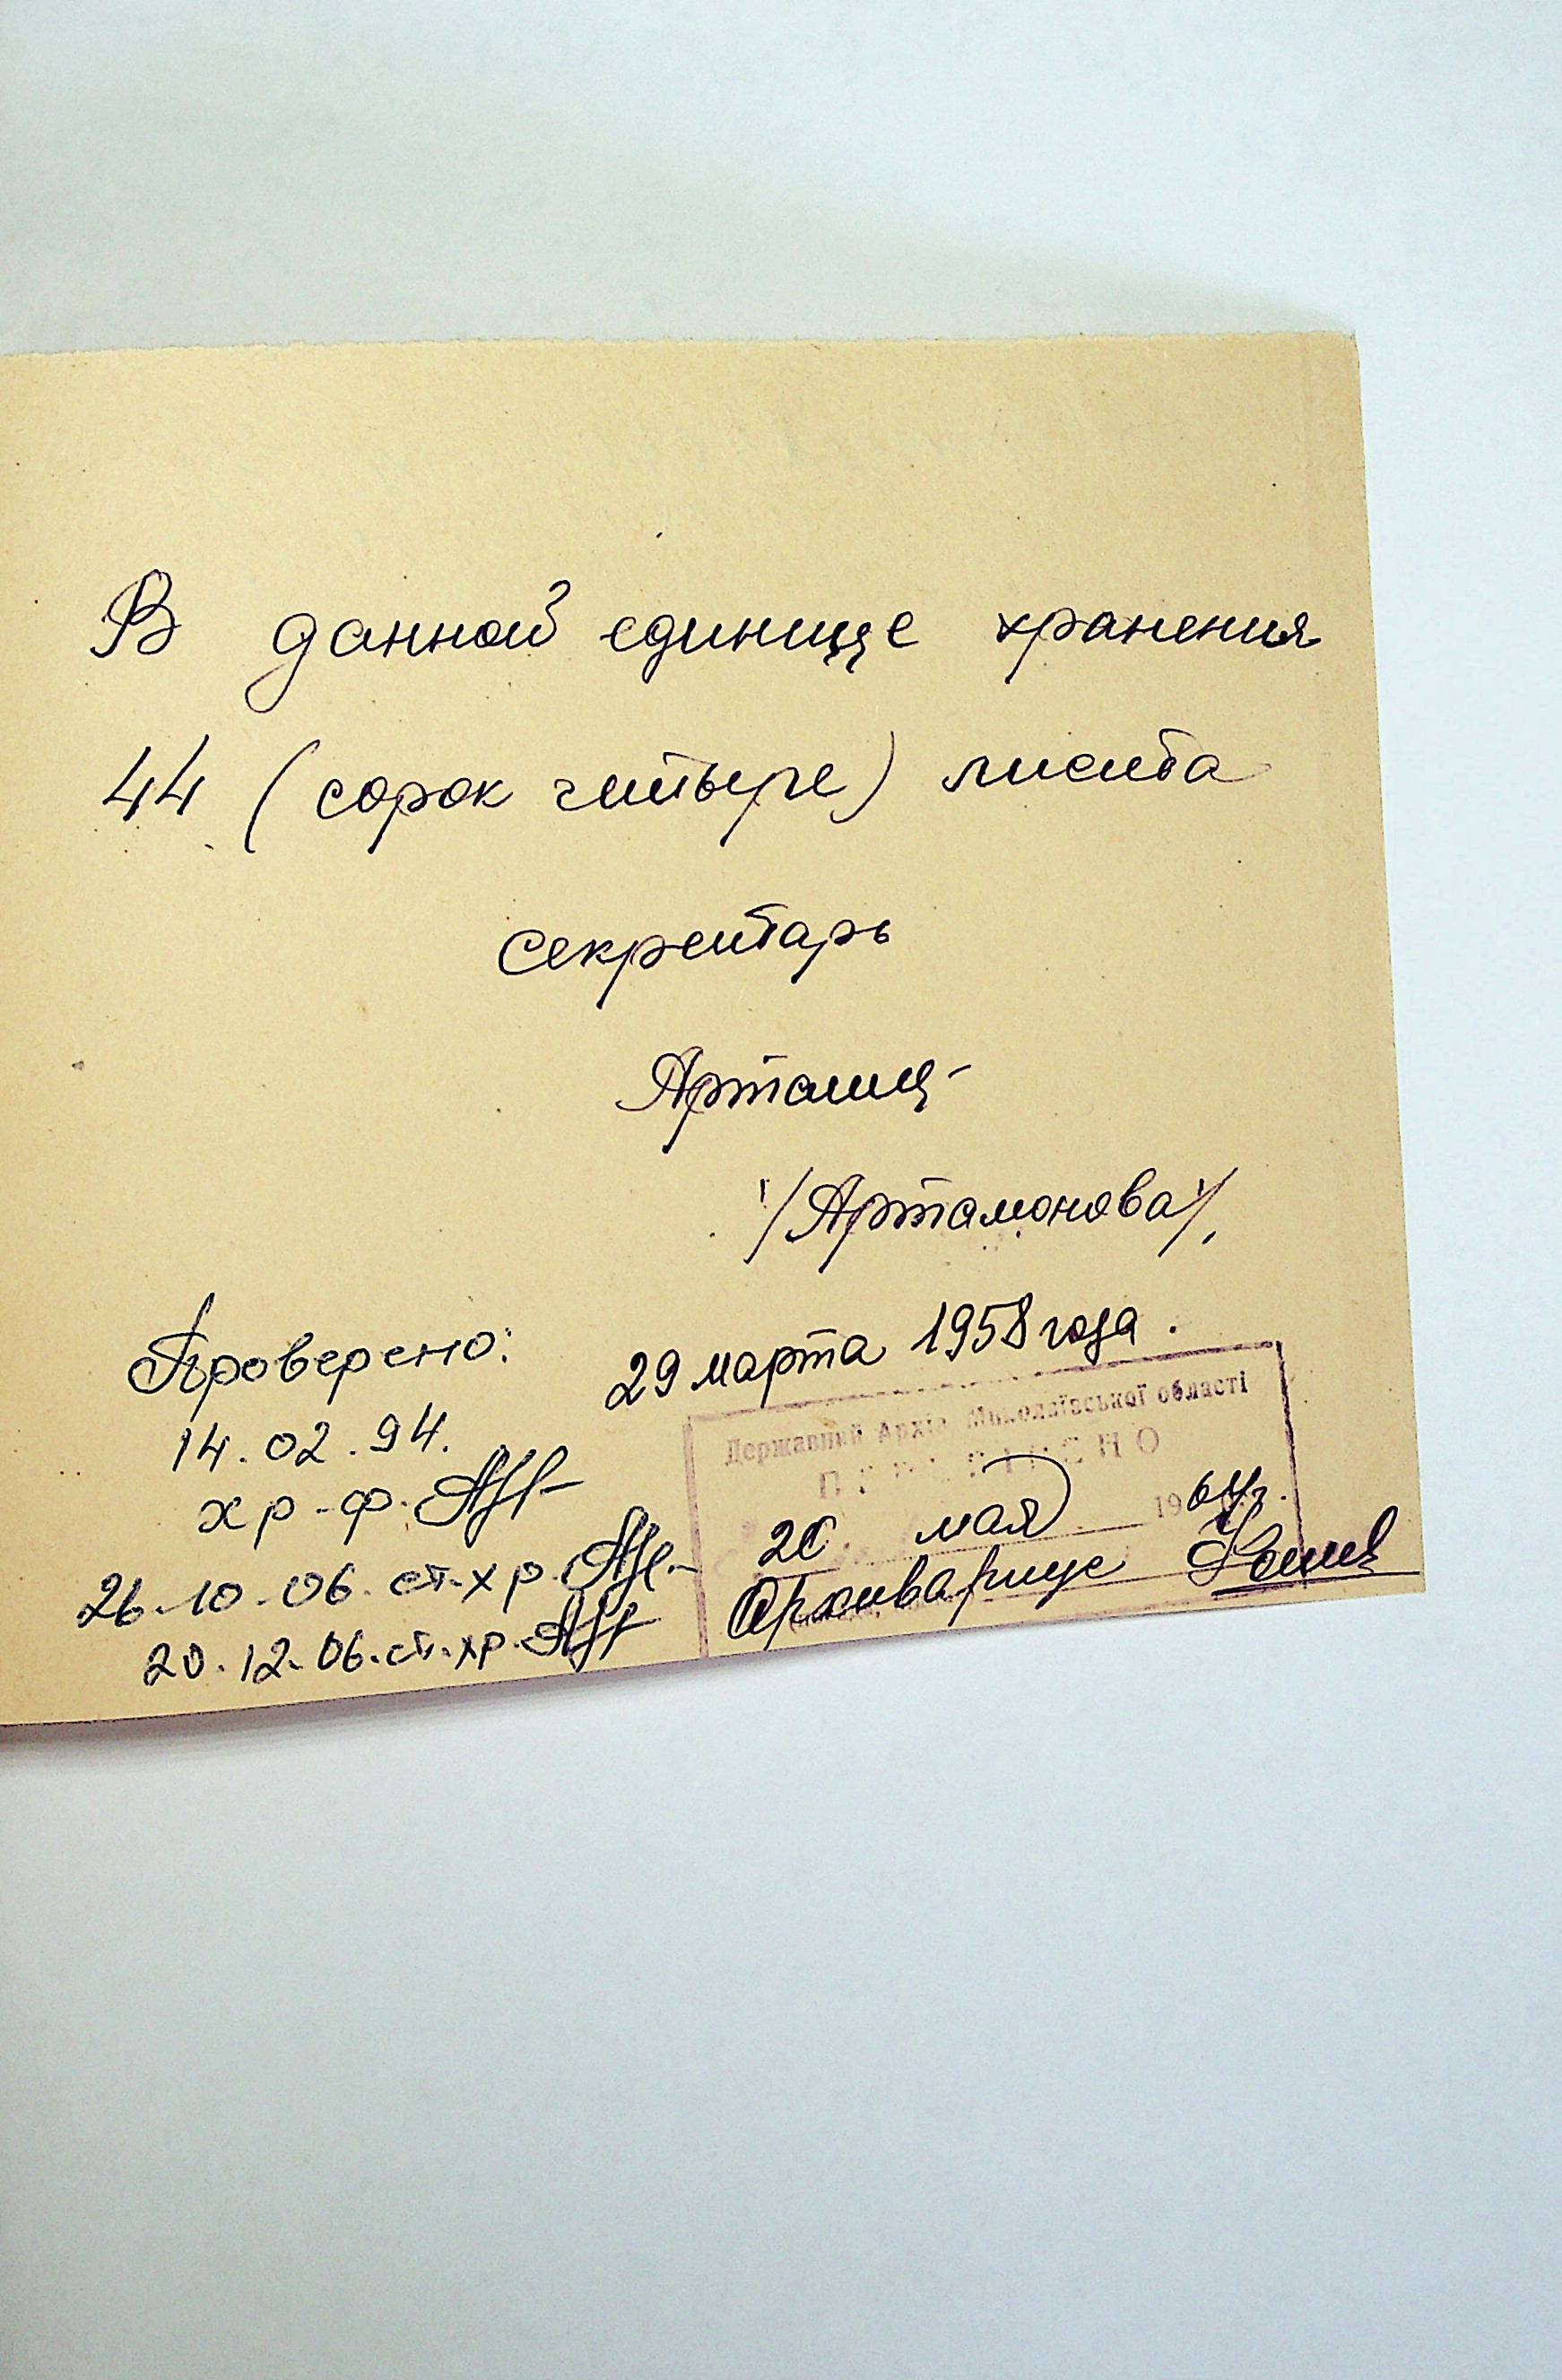 В данной единице хранения
44 (сорок четыре) листа
секретарь
/Артамонова/.
29 марта 1958 года.
Проверено:
14.02.94.
хр-ф.
26.10.06. ст.хр.
20.12.06. ст.хр.
Державний Архів Миколаївської області
ПЕРЕВІРЕНО
мая 1964г.
Архивариус